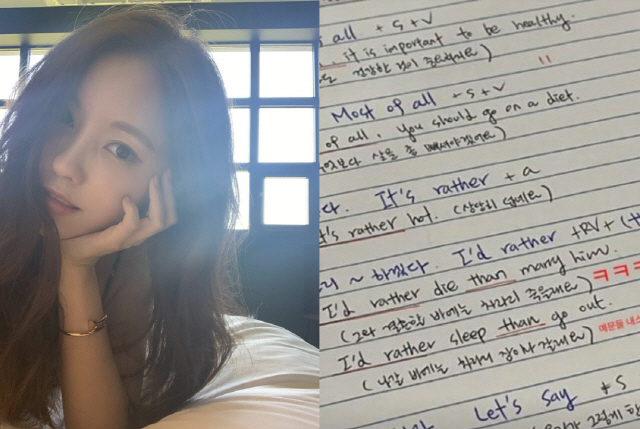 all + S + V
, it is important to be healthy.
건강한 것이 중요해요)
Most of all + S + V
of all, you should go on a diet.
살을 좀 빼셔야겠어요)
It's rather + a
It's rather hot. (상당히 덥네요)
~ 하겠다. I'd rather +RV+
I'd rather die than marry him.
(그와 결혼할 바에는 차라리 죽을래요) ㅋㅋㅋ
I'd rather sleep than go out.
(나갈 바에는 차라리 잠이나 잘래요)
예문들 내스
Let's say + S